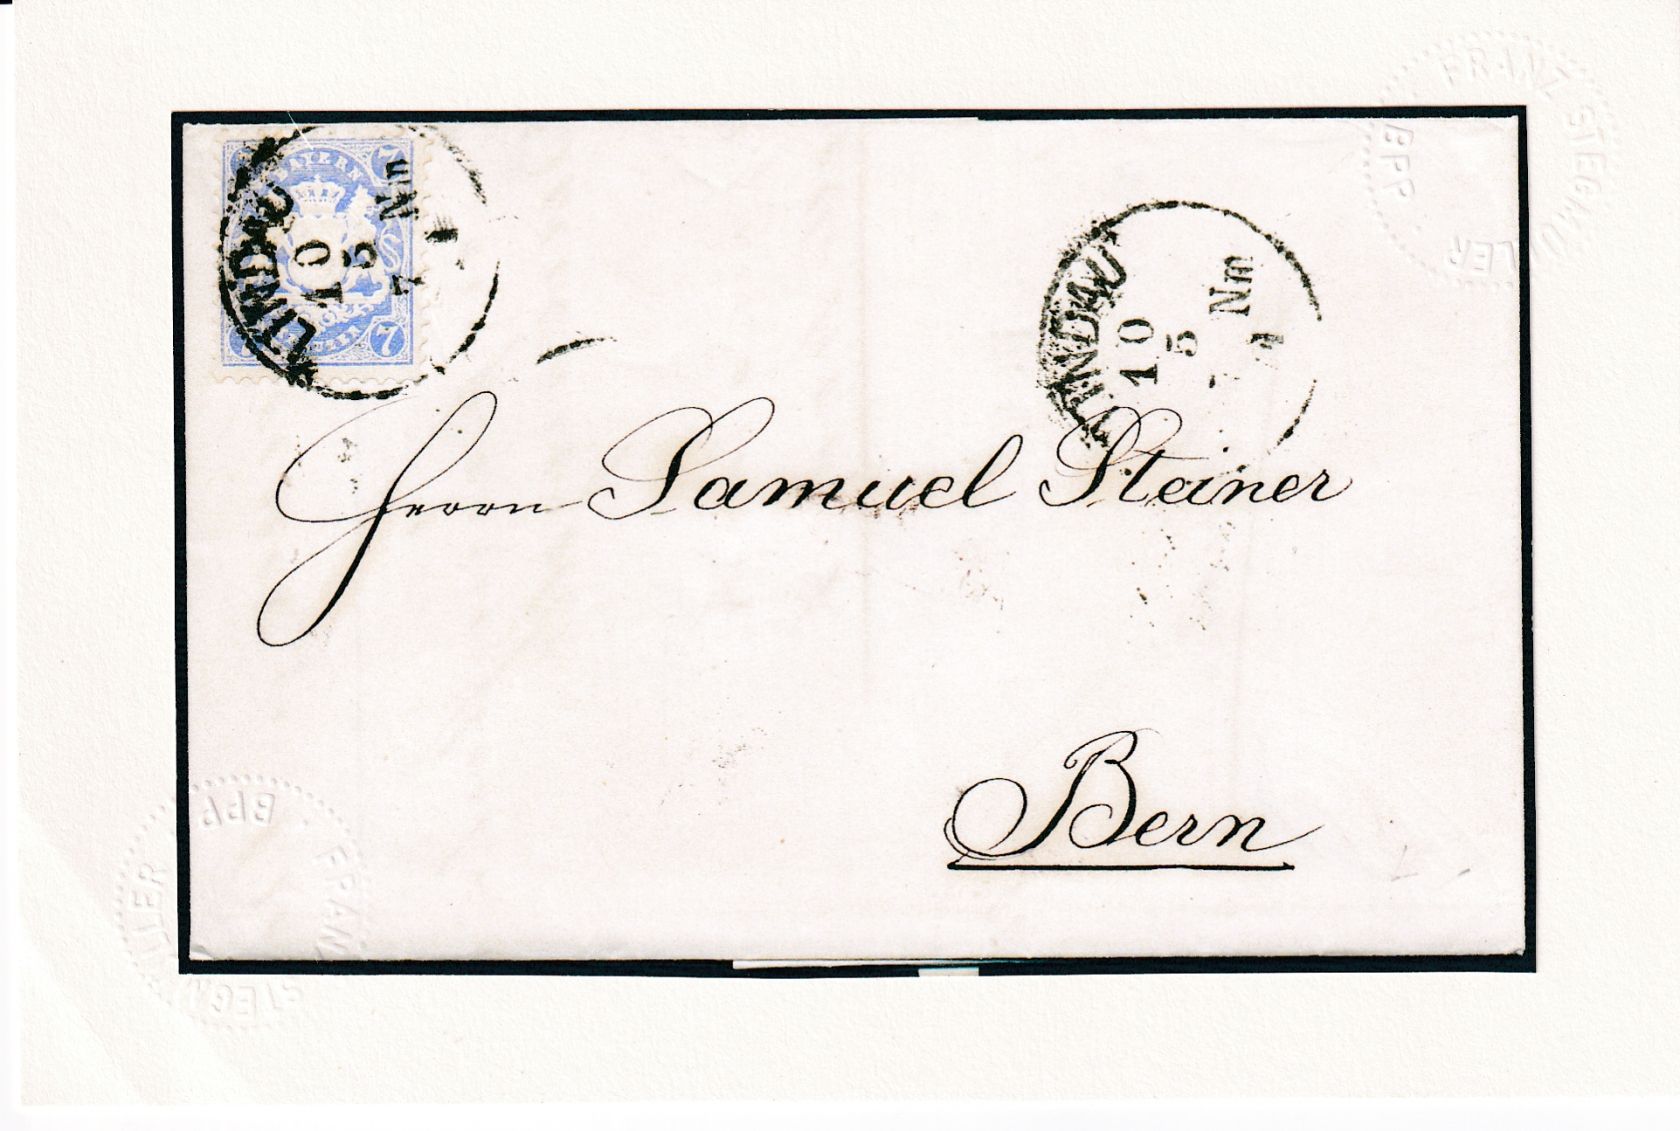 FRANZ STEGMÜLLER · BPP ·
BAYERN
7 7
7
LINDAU
10
5
7
Nm
LINDAU
10
5
Nm
Herrn Samuel Steiner
Bern
BPP · FRANZ STEGMÜLLER